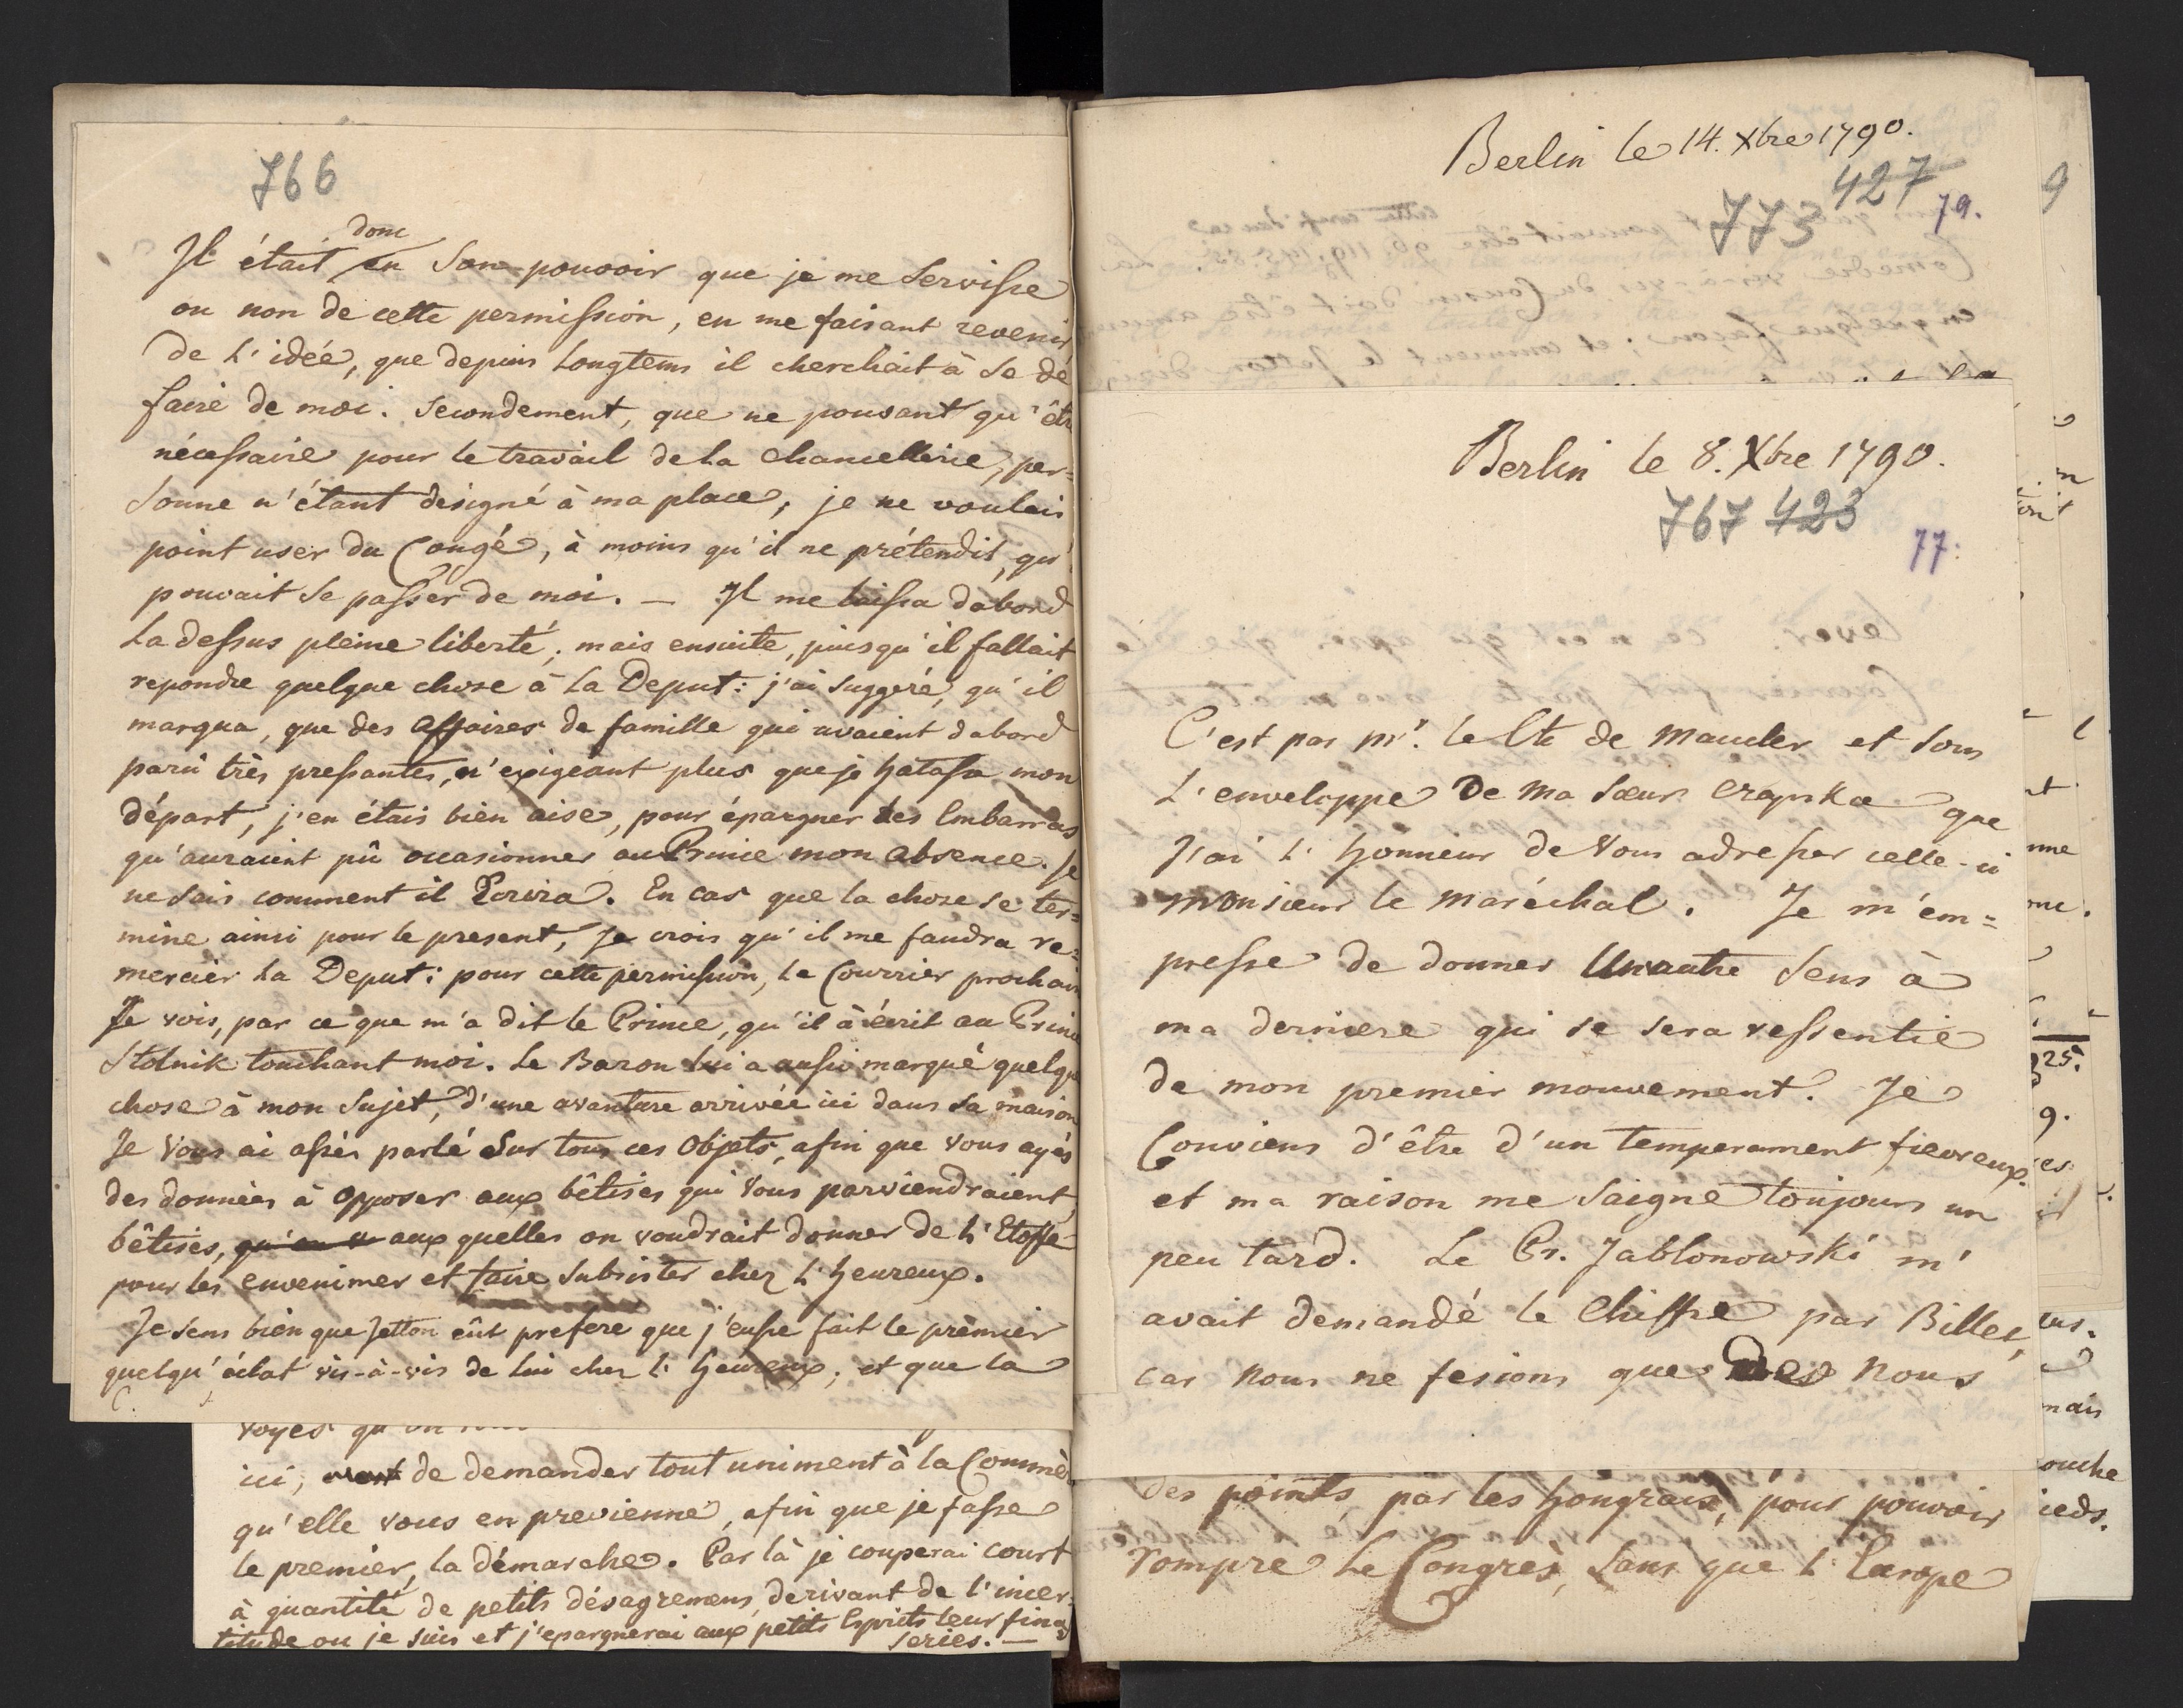 766
donc
Il était en son pouvoir que je me servisse
ou non de cette permission, en me faisant revenir
de l'idée, que depuis longtems il cherchait à se de
faire de moi. Secondement, que ne pouvant qu'êtr
nécessaire pour le travail de la Chancellerie, per=
sonne n'étant designé à ma place, je ne voulais
point user du Congé, à moins qu'il ne prétendit, qu'
pouvait se passer de moi. — Il me laissa dabord
la dessus pleine liberté, mais ensuite, puisqu'il fallait
repondre quelque chose à la Deput: j'ai suggeré, qu'il
marqua, que des affaires de famille qui avaient dabord
parû très pressantes, n'exigeant plus que je hatassa mon
départ, j'en étais bien aise, pour épargner les Embarras
qu'auraient pû occasionner au Prince mon absence. Je
ne sais comment il Ecrira. En cas que la chose se ter=
mine ainsi pour le present, Je crois qu'il me faudra re=
mercier la Deput: pour cette permission, le Courrier prochain
Je vois, par ce que m'a dit le Prince, qu'il à écrit au Prince
Stolnik touchant moi. Le Baron lui a aussi marqué quelque
chose à mon sujet, d'une avanture arrivée ici dans sa maison
Je vous ai assés parlé sur tous ces Objets, afin que vous ayés
des données à opposer aux bêtises qui vous parviendraient,
bêtises, aux quelles on voudrait donner de l'Etoffe
pour les envenimer et faire subsister chez l'heureux.
Je sens bien que Jetton eût preferé que j'eusse fait le prèmier
quelqu'éclat vis-à-vis de lui chez l'heureux; et que la
ici, de demander tout uniment à la Commè
qu'elle vous en previenne, afin que je fasse
le premier, la démarche. Par là je couperai court
à quantité de petits désagremens, derivant de l'incer-
titude ou je suis et j'epargnerai aux petits Esprits leur finas
series. —
Berlin le 14. Xbre 1790.
427
773
79.
Berlin le 8. Xbre 1790.
767 423
77.
C'est par Mr. le Cte de Mander et sous
l'enveloppe De Ma Sœur que
J'ai l'honneur de Vous adresser celle-ci
Monsieur le Maréchal. Je m'em=
presse de donner Un autre sens à
ma derniere qui se sera ressentie
de mon premier mouvement. Je
Conviens d'être d'un temperament fievreux
et ma raison me saigne toujours un
peu tard. Le Pr. Jablonowski m'
avait demandé le Chiffre par Billet,
car nous ne fesions que Nous
des points, par les hongrais, pour pouvoir
rompre le Congrès, sans que l'Europe